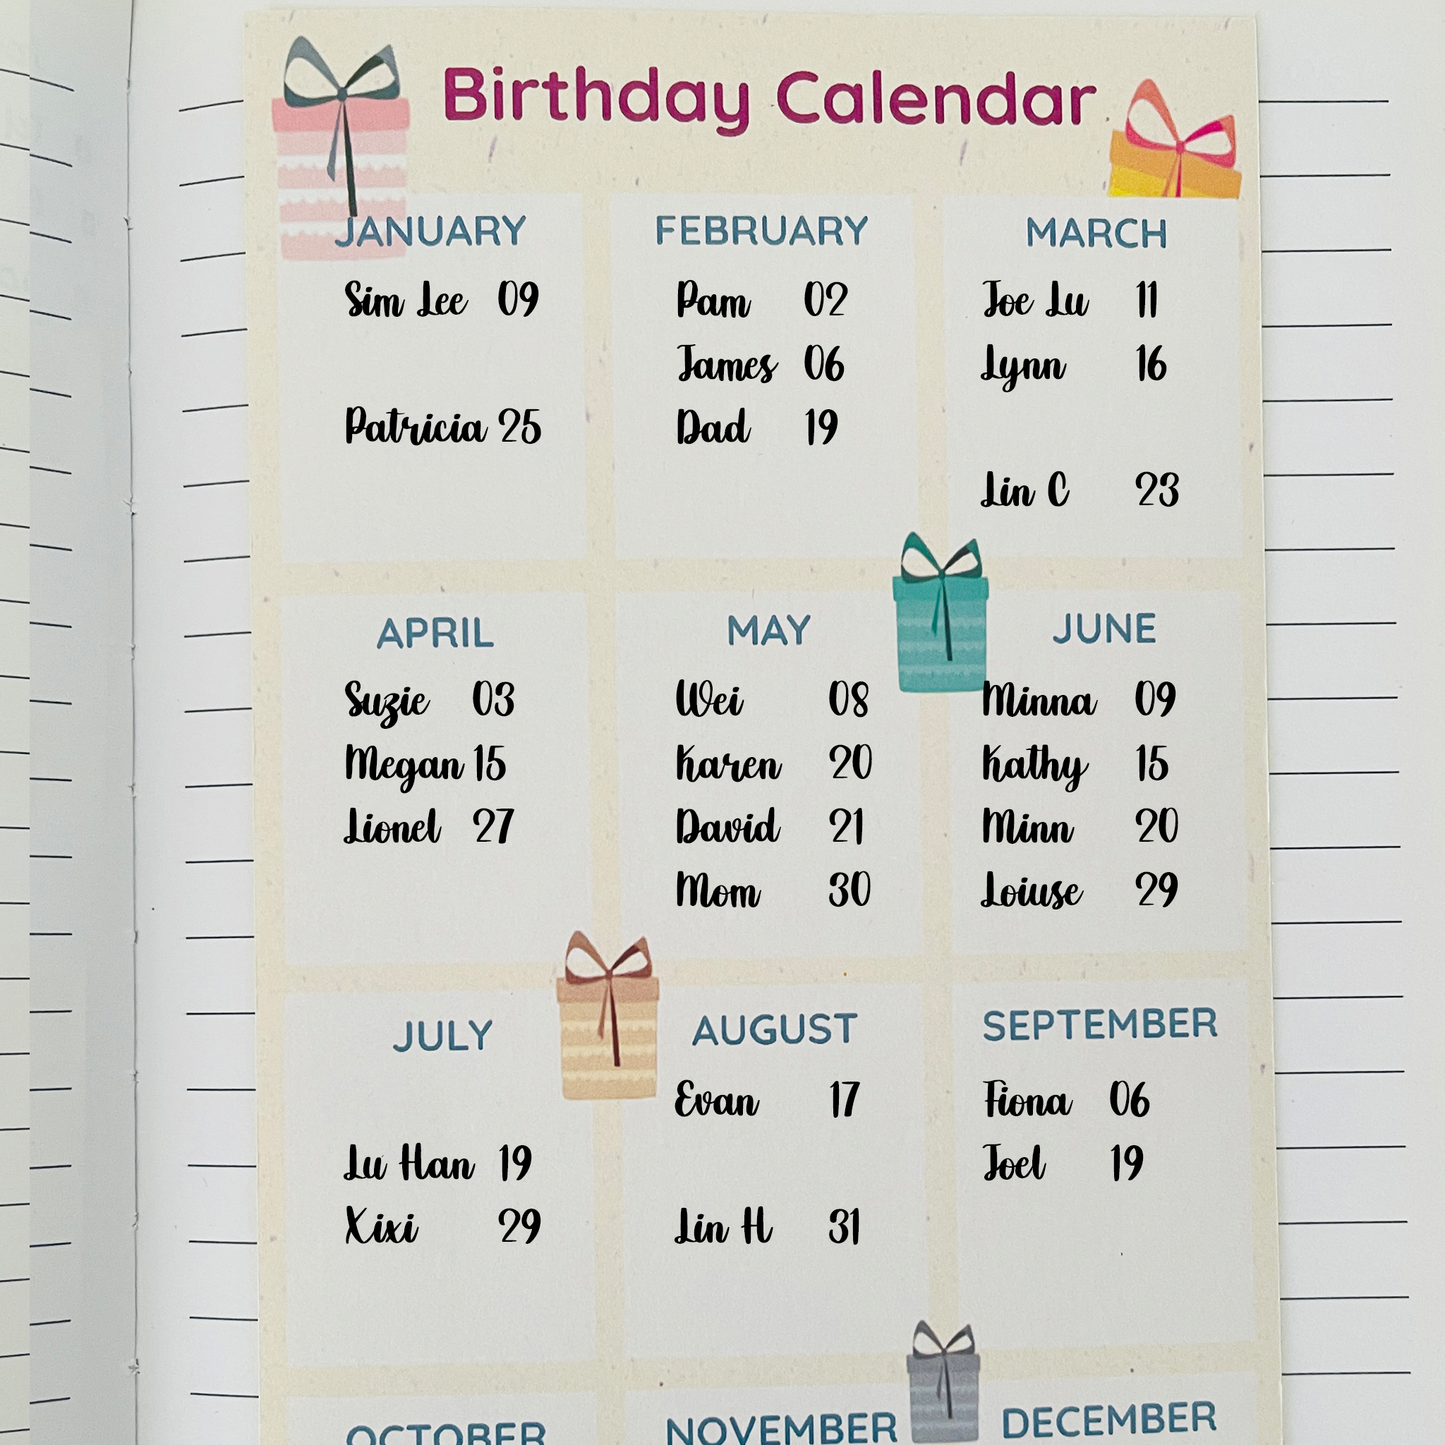 Birthday Calendar
JANUARY
Sim Lee 09
Patricia 25
FEBRUARY
Pam 02
James 06
Dad 19
MARCH
Joe Lu 11
Lynn 16
Lin C 23
APRIL
Suzie 03
Megan 15
Lionel 27
MAY
Wei 08
Karen 20
David 21
Mom 30
JUNE
Minna 09
Kathy 15
Minn 20
Loiuse 29
JULY
Lu Han 19
Xixi 29
AUGUST
Evan 17
Lin H 31
SEPTEMBER
Fiona 06
Joel 19
OCTOBER
NOVEMBER
DECEMBER